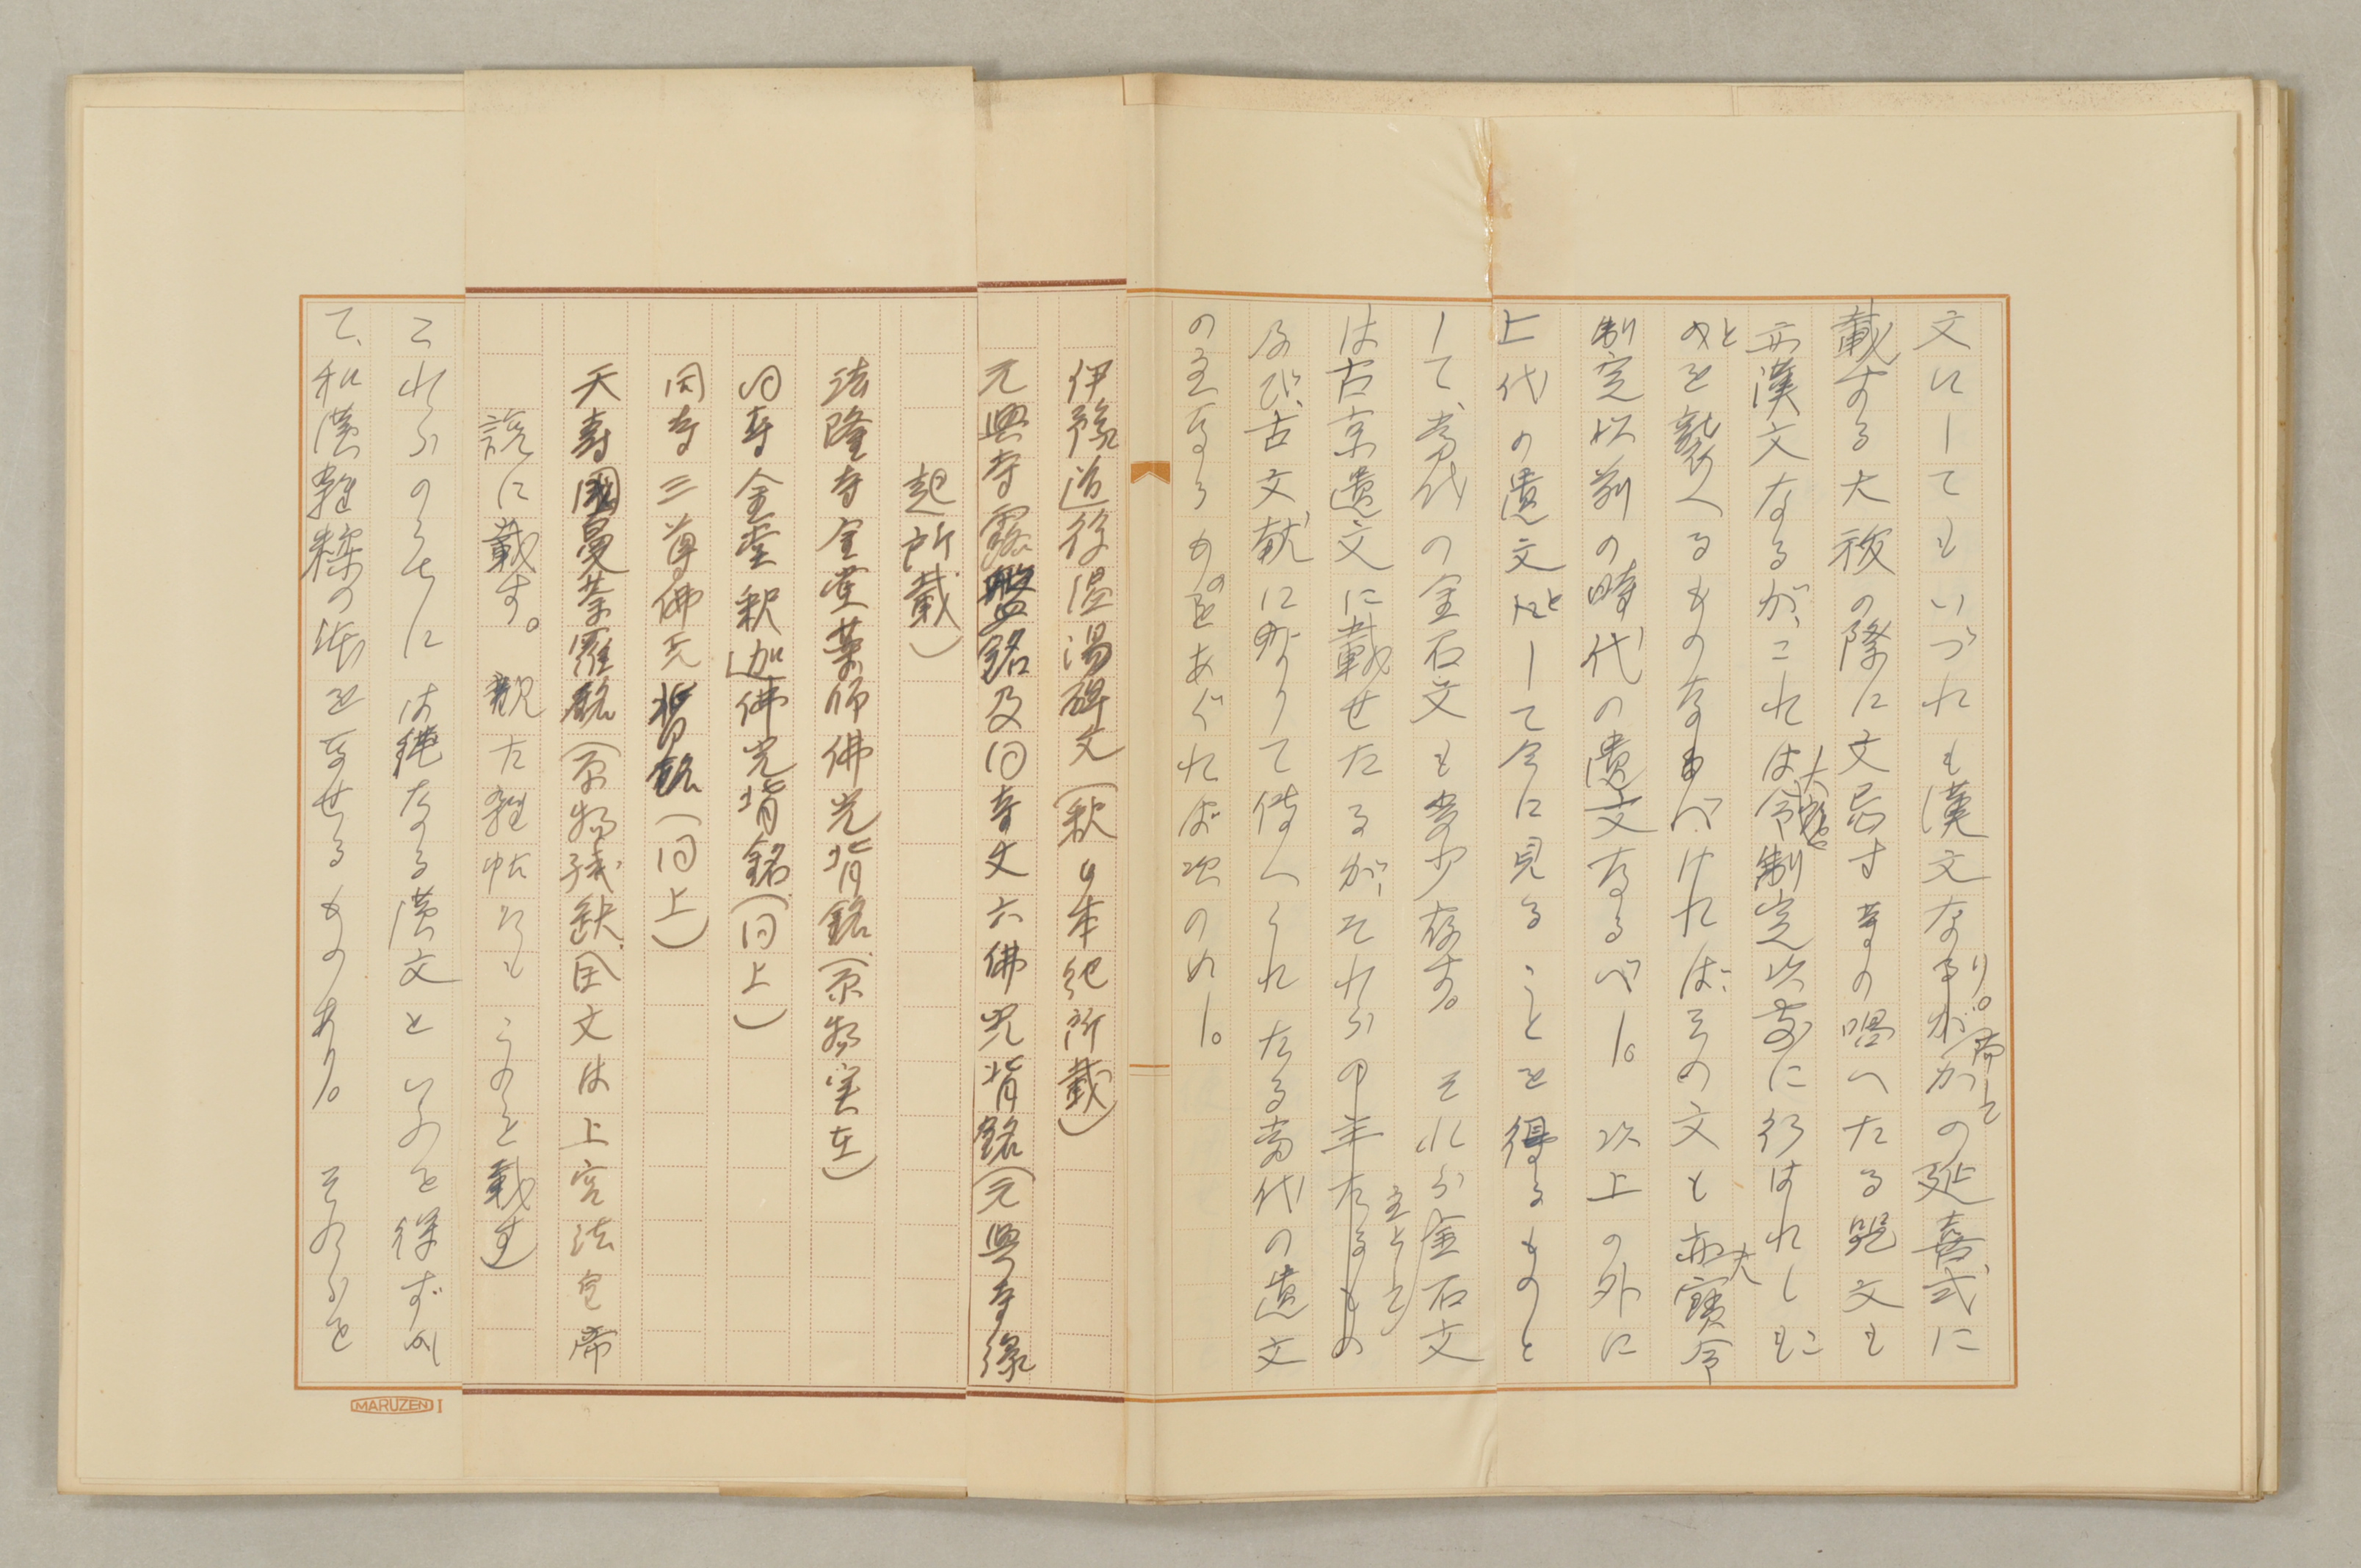 文にしてもいづれも漢文なり。而してかの延喜式に
載する大祓の際に文忌寸等の唱へたる呪文も
亦漢文なるが、これは大寶令制定以前に行はれしもこ
とを襲へるものなるべければ、その文も亦大寶令
制定以前の時代の遺文なるべし。以上の外に
上代の遺文として今に見ることを得るものと
して、当代の金石文も多少存す。それら金石文
は古京遺文に載せたるが、それらの主として
及び、古文献によりて伝へられたる当代の遺文
の主なるものをあぐれば次の如し。
伊豫道後温湯碑文(釈日本紀所載)
元興寺露盤銘及同寺丈六佛光背銘(元興寺縁
起所載)
法隆寺金堂薬師佛光背銘(原物実在)
同寺金堂釈迦佛光背銘(同上)
同寺三尊佛光背銘(同上)
天寿國曼荼羅銘(原物残缺、全文は上宮法皇帝
説に載す。観古雑帖にもこれを載す)
これらのうちには純なる漢文といふを得ずし
て、和漢雑糅の體をなせるものあり。それらを
MARUZEN I